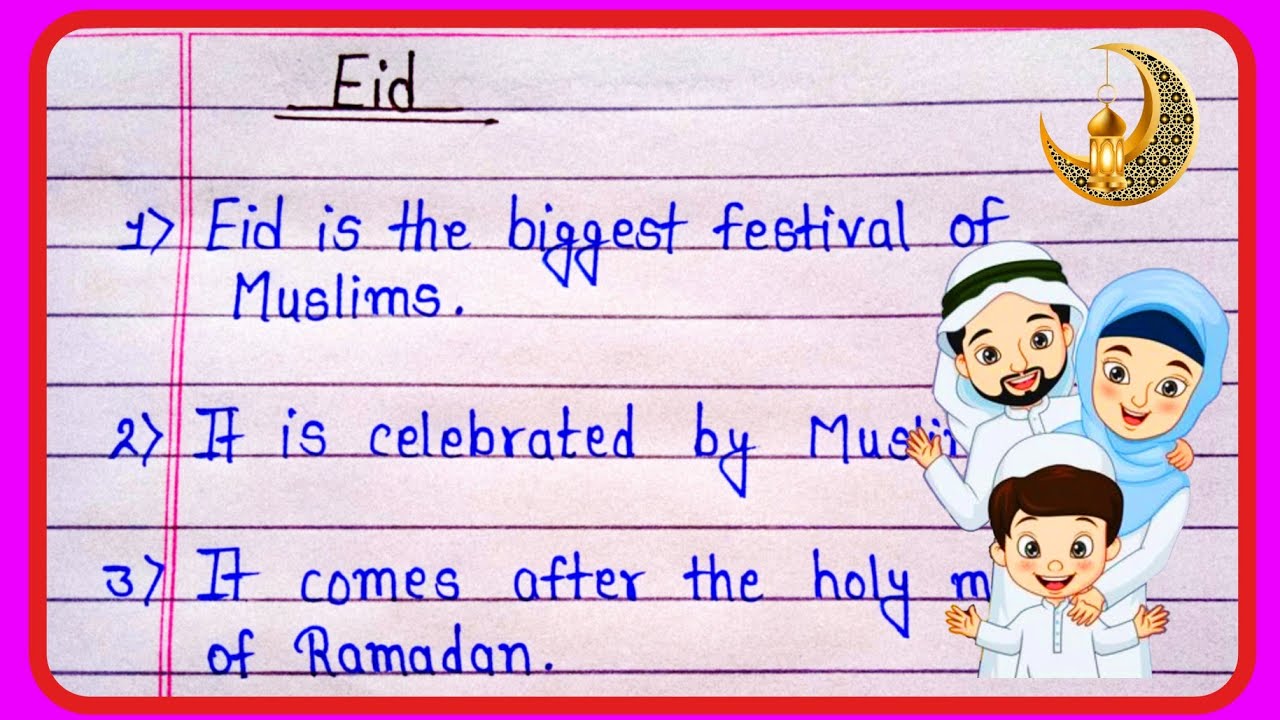 Eid
1) Eid is the biggest festival of
Muslims.
2) It is celebrated by
3) It comes after the holy
of Ramadan.